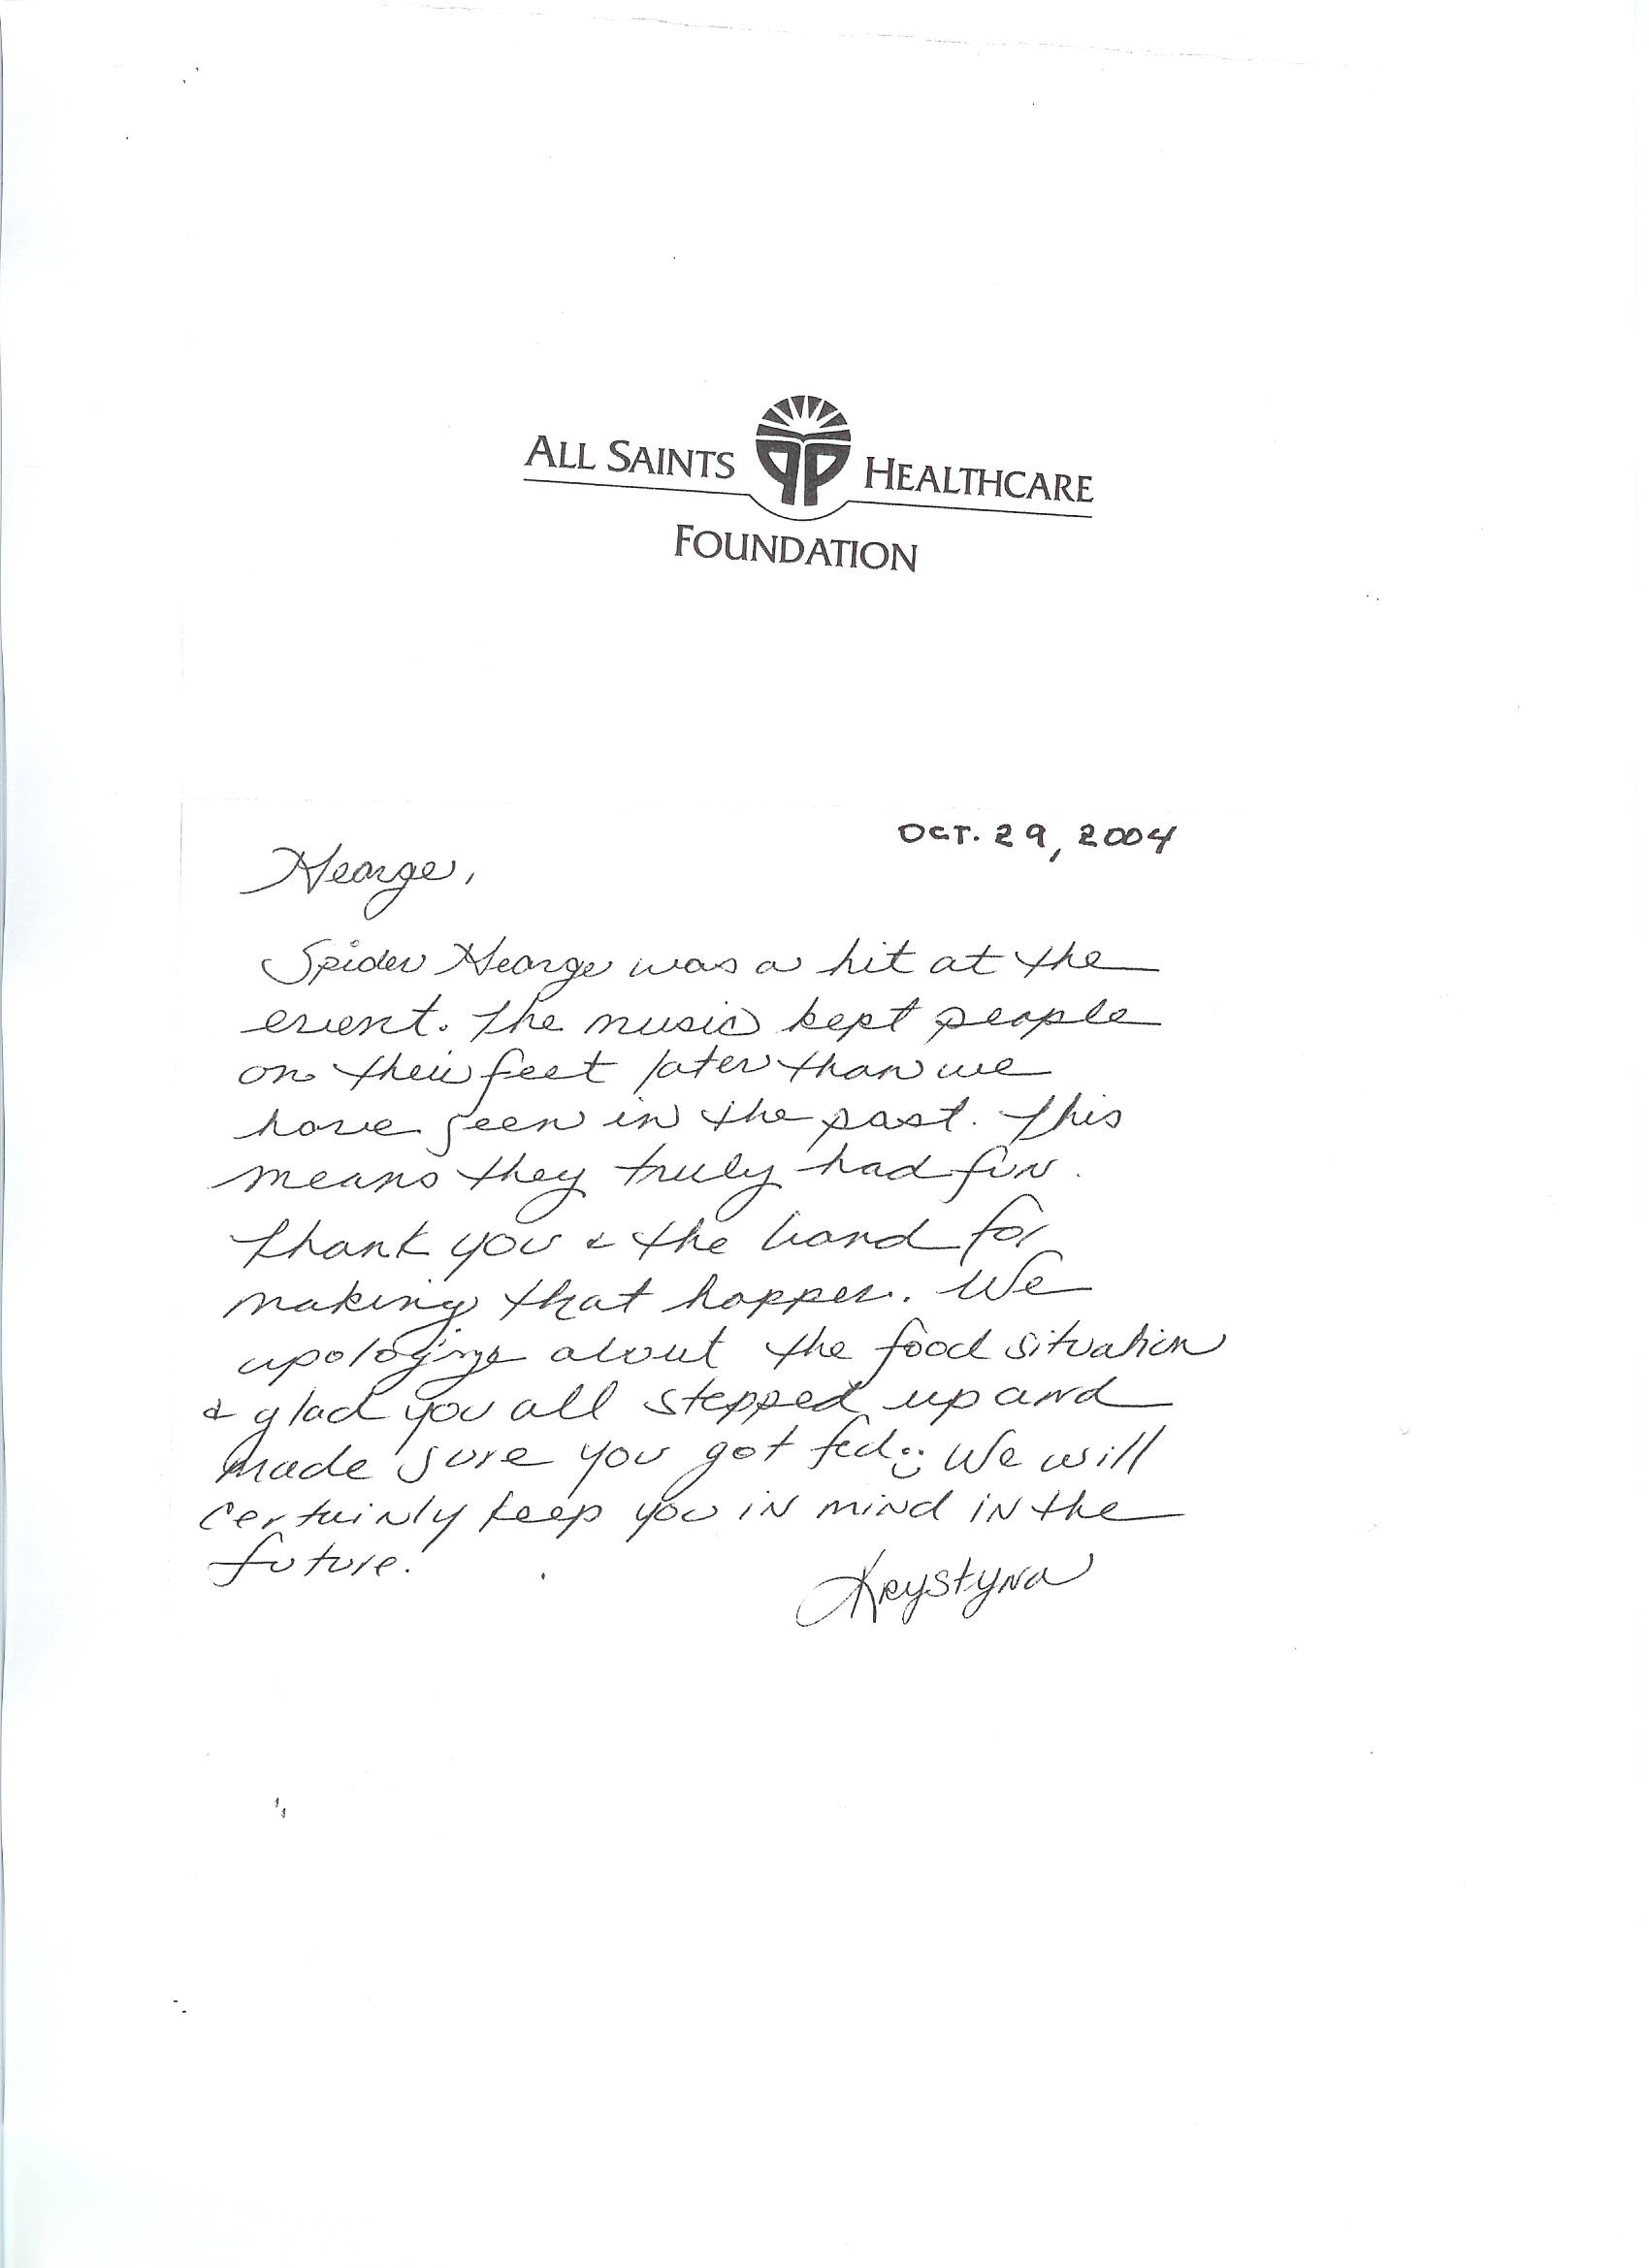 ALL SAINTS HEALTHCARE
FOUNDATION
OCT. 29, 2004
George,
Spider George was a hit at the
event. The music kept people
on their feet later than we
have seen in the past. This
means they truly had fun.
Thank you & the band for
making that happen. We
apologize about the food situation
& glad you all stepped up and
made sure you got fed :) We will
certainly keep you in mind in the
future.
Krystyna